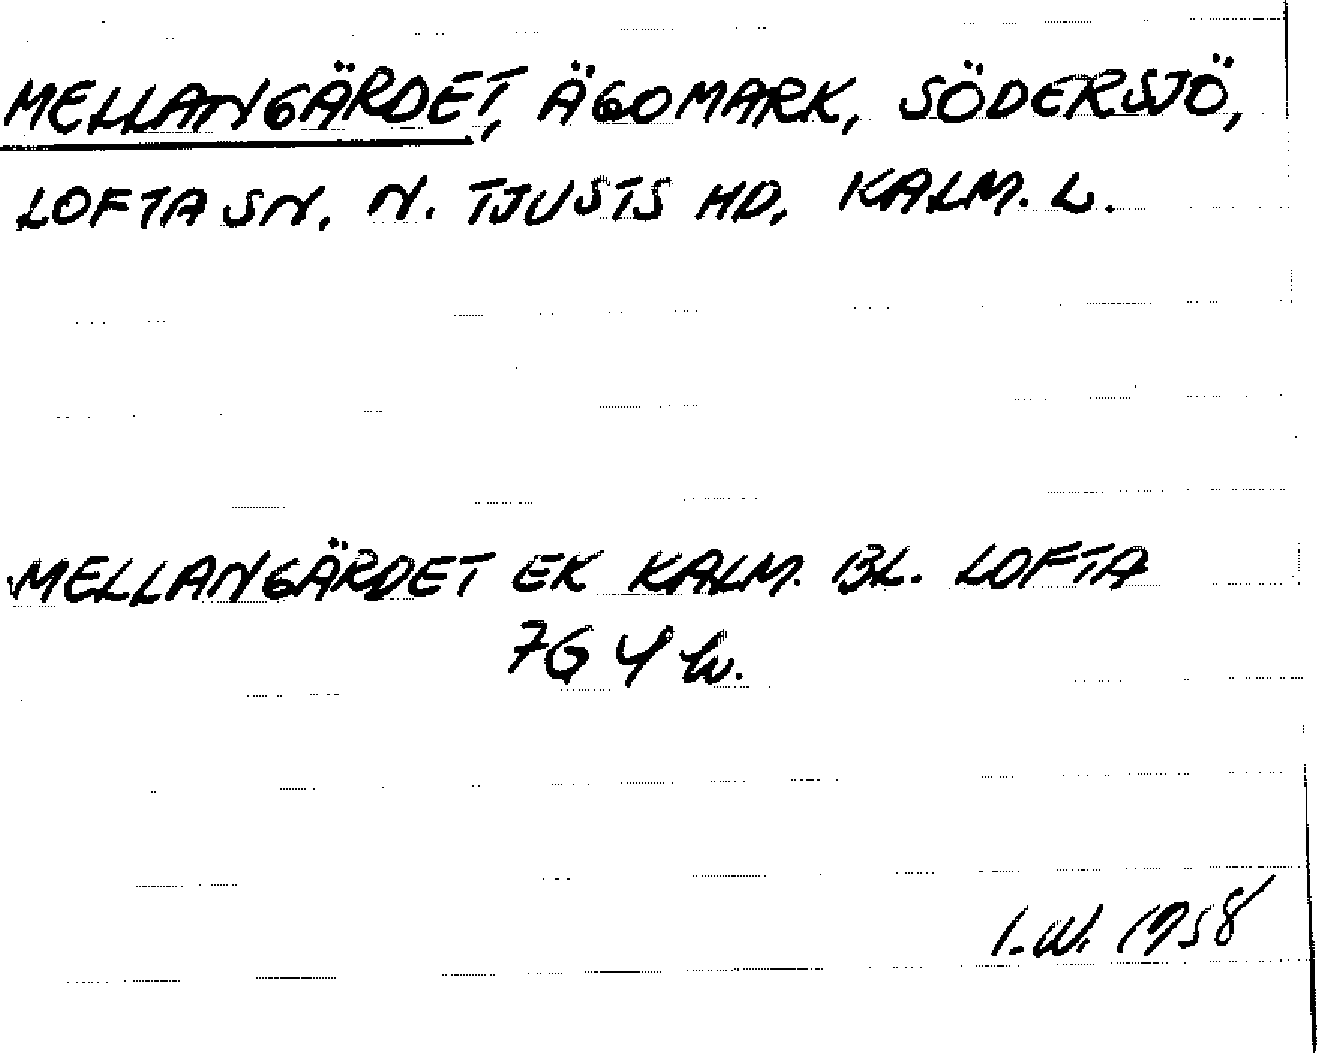 MELLANGÄRDET, ÄGOMARK, SÖDERSJÖ,
LOFTA SN. N. TJUSTS HD, KALM. L.
MELLANGÄRDET EK KALM. BL. LOFTA
7G 4 h.
I.W. 1958